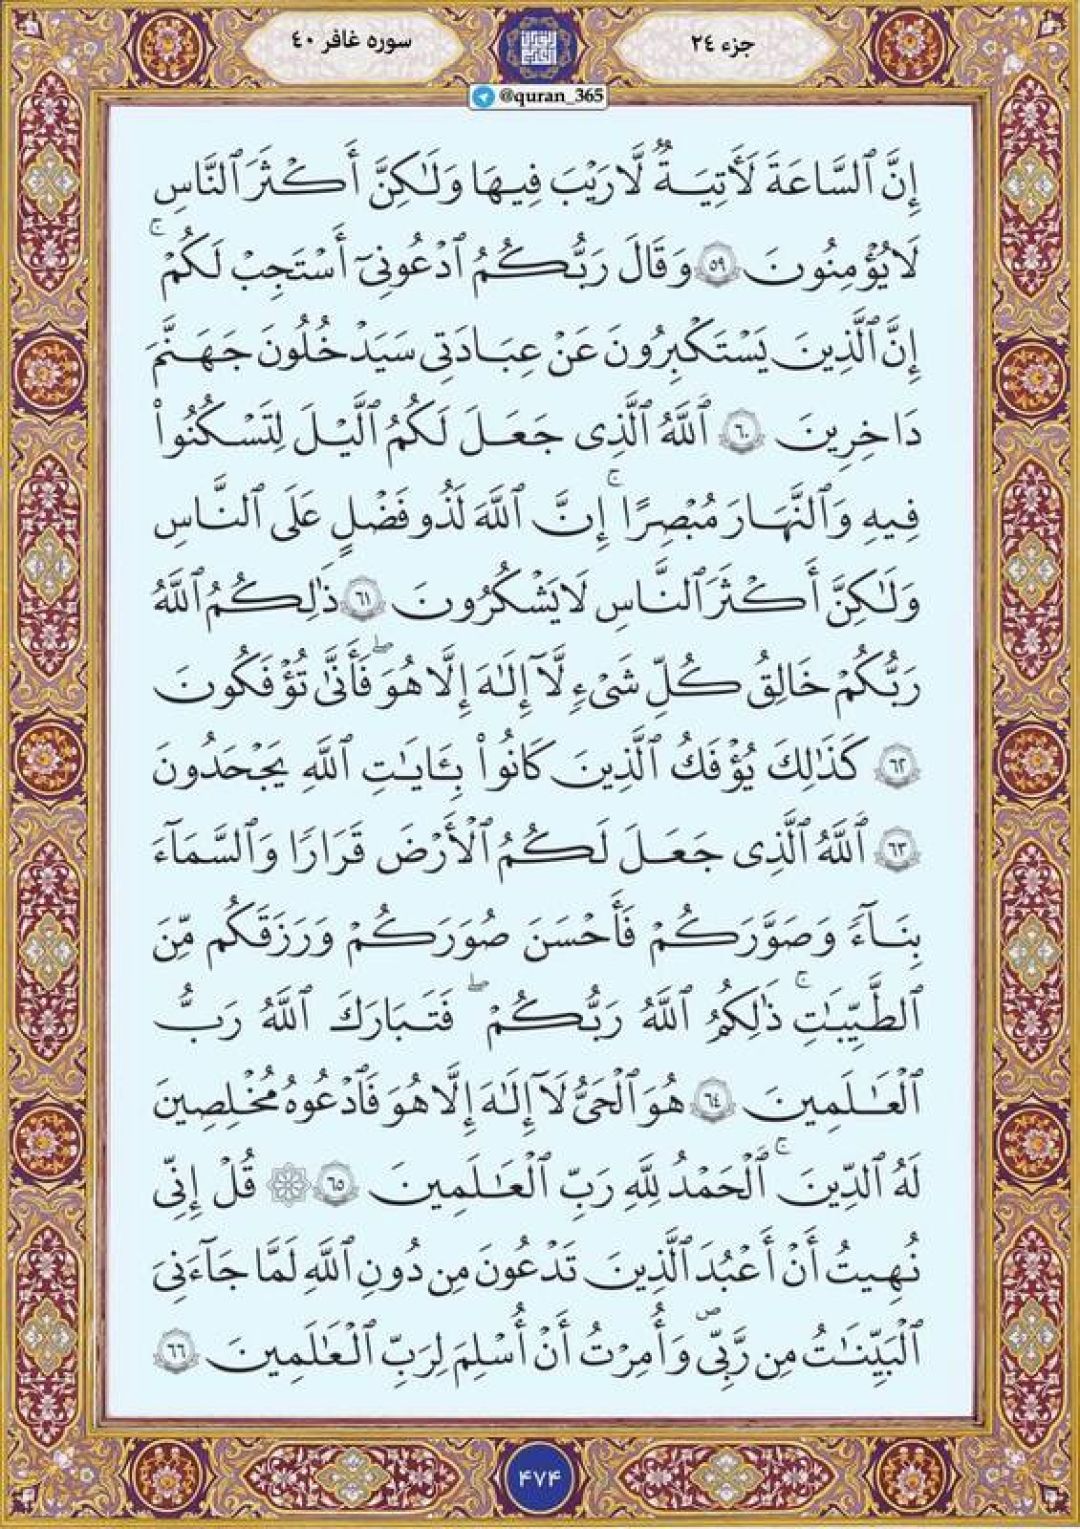 جزء ٢٤
سوره غافر ٤٠
@quran_365
إِنَّ ٱلسَّاعَةَ لَـَٔاتِيَةٌ لَّا رَيْبَ فِيهَا وَلَـٰكِنَّ أَكْثَرَ ٱلنَّاسِ
لَا يُؤْمِنُونَ ٥٩ وَقَالَ رَبُّكُمُ ٱدْعُونِىٓ أَسْتَجِبْ لَكُمْ ۚ
إِنَّ ٱلَّذِينَ يَسْتَكْبِرُونَ عَنْ عِبَادَتِى سَيَدْخُلُونَ جَهَنَّمَ
دَاخِرِينَ ٦٠ ٱللَّهُ ٱلَّذِى جَعَلَ لَكُمُ ٱلَّيْلَ لِتَسْكُنُوا۟
فِيهِ وَٱلنَّهَارَ مُبْصِرًا ۚ إِنَّ ٱللَّهَ لَذُو فَضْلٍ عَلَى ٱلنَّاسِ
وَلَـٰكِنَّ أَكْثَرَ ٱلنَّاسِ لَا يَشْكُرُونَ ٦١ ذَٰلِكُمُ ٱللَّهُ
رَبُّكُمْ خَالِقُ كُلِّ شَىْءٍ لَّآ إِلَـٰهَ إِلَّا هُوَ ۖ فَأَنَّىٰ تُؤْفَكُونَ
٦٢ كَذَٰلِكَ يُؤْفَكُ ٱلَّذِينَ كَانُوا۟ بِـَٔايَـٰتِ ٱللَّهِ يَجْحَدُونَ
٦٣ ٱللَّهُ ٱلَّذِى جَعَلَ لَكُمُ ٱلْأَرْضَ قَرَارًا وَٱلسَّمَآءَ
بِنَآءً وَصَوَّرَكُمْ فَأَحْسَنَ صُوَرَكُمْ وَرَزَقَكُم مِّنَ
ٱلطَّيِّبَـٰتِ ۚ ذَٰلِكُمُ ٱللَّهُ رَبُّكُمْ ۖ فَتَبَارَكَ ٱللَّهُ رَبُّ
ٱلْعَـٰلَمِينَ ٦٤ هُوَ ٱلْحَىُّ لَآ إِلَـٰهَ إِلَّا هُوَ فَٱدْعُوهُ مُخْلِصِينَ
لَهُ ٱلدِّينَ ۗ ٱلْحَمْدُ لِلَّهِ رَبِّ ٱلْعَـٰلَمِينَ ٦٥ ۞ قُلْ إِنِّى
نُهِيتُ أَنْ أَعْبُدَ ٱلَّذِينَ تَدْعُونَ مِن دُونِ ٱللَّهِ لَمَّا جَآءَنِىَ
ٱلْبَيِّنَـٰتُ مِن رَّبِّى وَأُمِرْتُ أَنْ أُسْلِمَ لِرَبِّ ٱلْعَـٰلَمِينَ ٦٦
۴۷۴